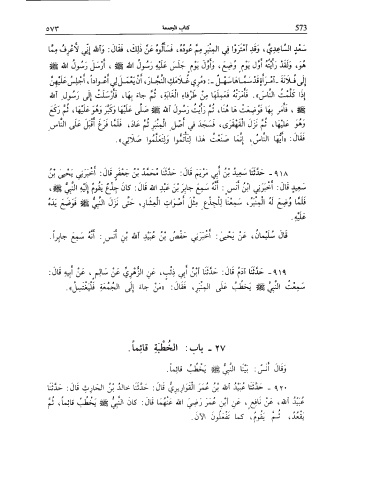 573 كتاب الجمعة ٥٧٣
سَعْدٍ السَّاعِدِيَّ، وَقَدِ امْتَرَوْا فِي الْمِنْبَرِ مِمَّ عُودُهُ، فَسَأَلُوهُ عَنْ ذَلِكَ، فَقَالَ: وَاللهِ إِنِّي لَأَعْرِفُ مِمَّا
هُوَ، وَلَقَدْ رَأَيْتُهُ أَوَّلَ يَوْمٍ وُضِعَ، وَأَوَّلَ يَوْمٍ جَلَسَ عَلَيْهِ رَسُولُ اللهِ ﷺ، أَرْسَلَ رَسُولُ اللهِ ﷺ
إِلَى فُلَانَةَ - امْرَأَةٍ قَدْ سَمَّاهَا سَهْلٌ - «مُرِي غُلَامَكِ النَّجَّارَ، أَنْ يَعْمَلَ لِي أَعْوَاداً، أَجْلِسُ عَلَيْهِنَّ
إِذَا كَلَّمْتُ النَّاسَ». فَأَمَرَتْهُ فَعَمِلَهَا مِنْ طَرْفَاءِ الْغَابَةِ، ثُمَّ جَاءَ بِهَا، فَأَرْسَلَتْ إِلَى رَسُولِ اللهِ
ﷺ، فَأَمَرَ بِهَا فَوُضِعَتْ هَا هُنَا، ثُمَّ رَأَيْتُ رَسُولَ اللهِ ﷺ صَلَّى عَلَيْهَا وَكَبَّرَ وَهُوَ عَلَيْهَا، ثُمَّ رَكَعَ
وَهُوَ عَلَيْهَا، ثُمَّ نَزَلَ الْقَهْقَرَى، فَسَجَدَ فِي أَصْلِ الْمِنْبَرِ ثُمَّ عَادَ، فَلَمَّا فَرَغَ أَقْبَلَ عَلَى النَّاسِ
فَقَالَ: «أَيُّهَا النَّاسُ، إِنَّمَا صَنَعْتُ هَذَا لِتَأْتَمُّوا وَلِتَعَلَّمُوا صَلَاتِي».
٩١٨ - حَدَّثَنَا سَعِيدُ بْنُ أَبِي مَرْيَمَ قَالَ: حَدَّثَنَا مُحَمَّدُ بْنُ جَعْفَرٍ قَالَ: أَخْبَرَنِي يَحْيَى بْنُ
سَعِيدٍ قَالَ: أَخْبَرَنِي ابْنُ أَنَسٍ: أَنَّهُ سَمِعَ جَابِرَ بْنَ عَبْدِ اللهِ قَالَ: كَانَ جِذْعٌ يَقُومُ إِلَيْهِ النَّبِيُّ ﷺ،
فَلَمَّا وُضِعَ لَهُ الْمِنْبَرُ، سَمِعْنَا لِلْجِذْعِ مِثْلَ أَصْوَاتِ الْعِشَارِ، حَتَّى نَزَلَ النَّبِيُّ ﷺ فَوَضَعَ يَدَهُ
عَلَيْهِ.
قَالَ سُلَيْمَانُ، عَنْ يَحْيَى: أَخْبَرَنِي حَفْصُ بْنُ عُبَيْدِ اللهِ بْنِ أَنَسٍ: أَنَّهُ سَمِعَ جَابِراً.
٩١٩ - حَدَّثَنَا آدَمُ قَالَ: حَدَّثَنَا ابْنُ أَبِي ذِئْبٍ، عَنِ الزُّهْرِيِّ عَنْ سَالِمٍ، عَنْ أَبِيهِ قَالَ:
سَمِعْتُ النَّبِيَّ ﷺ يَخْطُبُ عَلَى الْمِنْبَرِ، فَقَالَ: «مَنْ جَاءَ إِلَى الْجُمُعَةِ فَلْيَغْتَسِلْ».
٢٧ - باب: الْخُطْبَةِ قَائِماً.
وَقَالَ أَنَسٌ: بَيْنَا النَّبِيُّ ﷺ يَخْطُبُ قَائِماً.
٩٢٠ - حَدَّثَنَا عُبَيْدُ اللهِ بْنُ عُمَرَ الْقَوَارِيرِيُّ قَالَ: حَدَّثَنَا خَالِدُ بْنُ الْحَارِثِ قَالَ: حَدَّثَنَا
عُبَيْدُ اللهِ، عَنْ نَافِعٍ، عَنِ ابْنِ عُمَرَ رَضِيَ اللهُ عَنْهُمَا قَالَ: كَانَ النَّبِيُّ ﷺ يَخْطُبُ قَائِماً، ثُمَّ
يَقْعُدُ، ثُمَّ يَقُومُ، كَمَا تَفْعَلُونَ الآنَ.